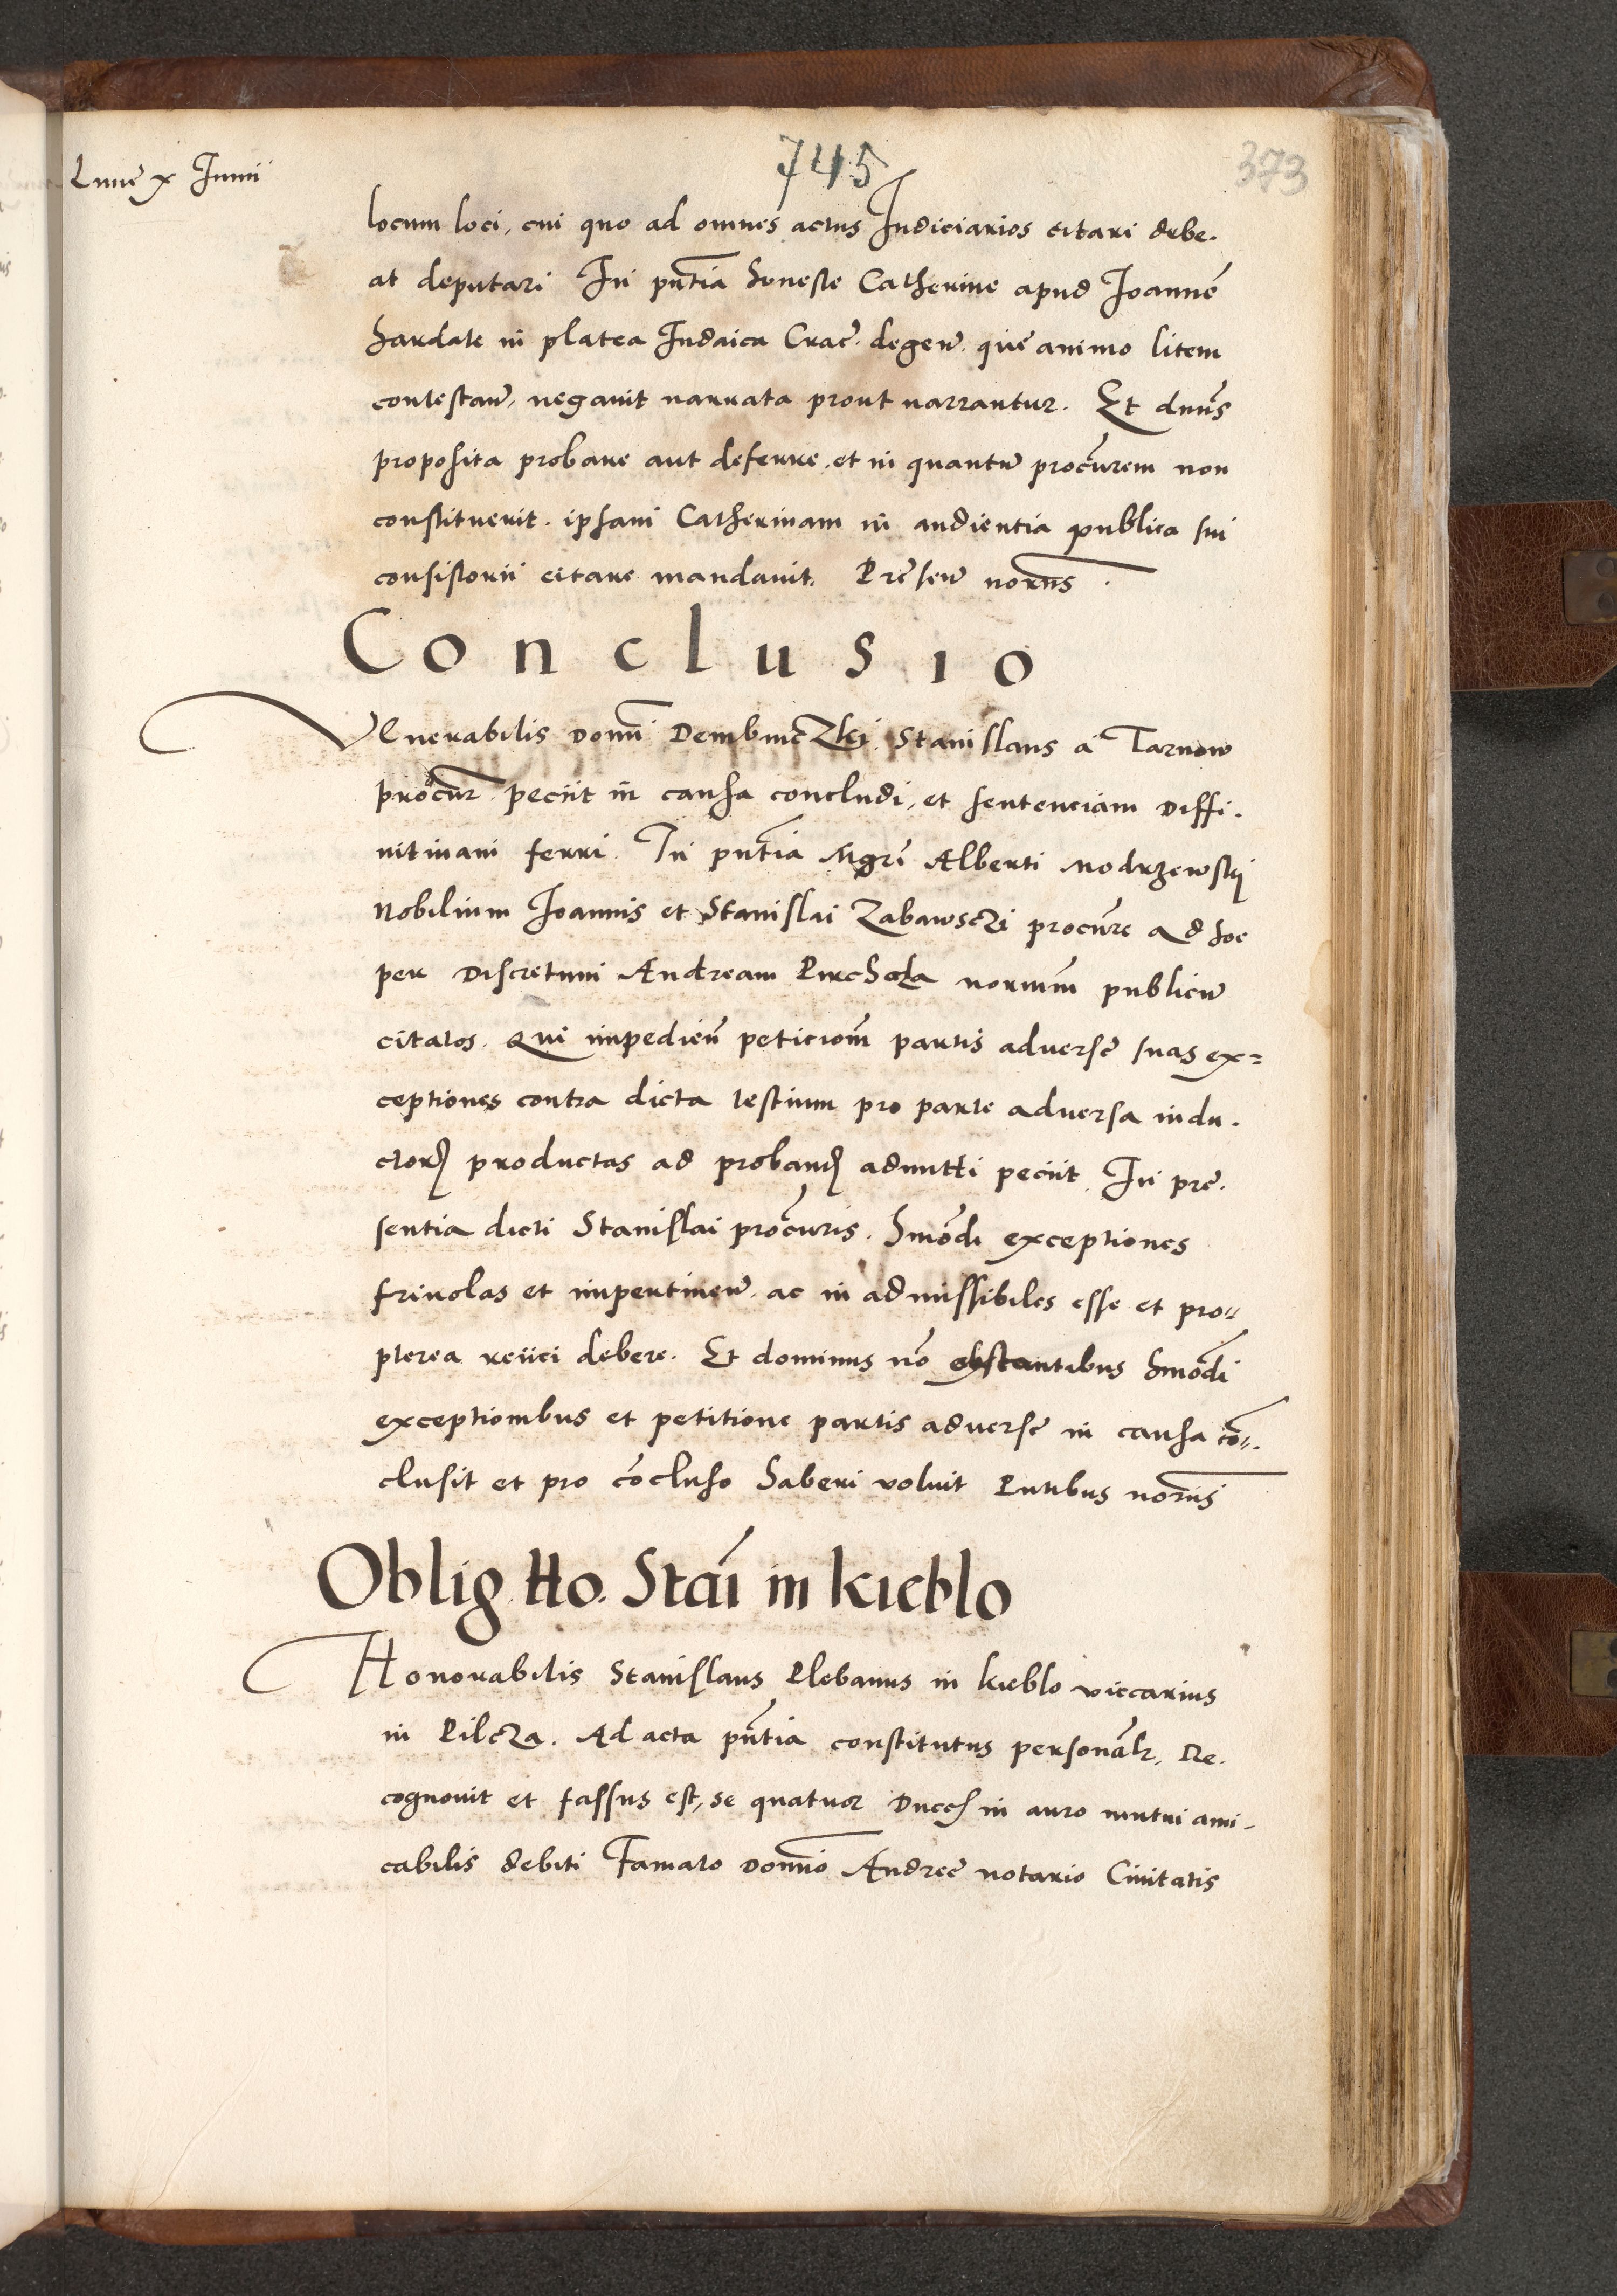 745
373
Lune x Junii
locum loci, cui quo ad omnes actus Judiciarios citari debe-
at deputari In pntia honeste Catherine apud Joanne
hardate in platea Judaica Crac. degen. que animo litem
contestan. negavit narrata prout narrantur. Et dnus
proposita probare aut deferre, et in quantu procurem non
constituerit. ipsam Catherinam in audientia publica sui
consistorii citare mandavit. Presen. noriis.
Conclusio
Venerabilis Domi DembinczKi Stanislaus a Tarnow
procur. peciit in causa concludi, et sentenciam Diffi-
nitivam ferri. In pntia Mgri Alberti Modrzewskj
Nobilium Joannis et Stanislai Zabawsczi procure Ad hoc
per Discretum Andream norium publicu
citatos. Qui impedien peticiom partis adverse suas ex=
ceptiones contra dicta testium pro parte adversa indu-
ctor productas ad proband admitti peciit. In pre-
sentia dicti Stanislai procuris. hmodi exceptiones
frivolas et impertinen. ac in admissibiles esse et pro=
pterea reiici debere. Et dominus no obstantibus hmodi
exceptionibus et petitione partis adverse in causa co=
clusit et pro co̅cluso haberi voluit Pntibus noriis
Oblig Ho. Stai in kieblo
Honorabilis Stanislaus Plebanus in kieblo viccarius
in Pilcza. Ad acta pntia constitutus personalr. Re-
cognovit et fassus est, se quatuor Ducc in auro mutui ami-
cabilis debiti Famato Domio Andree notario Civitatis